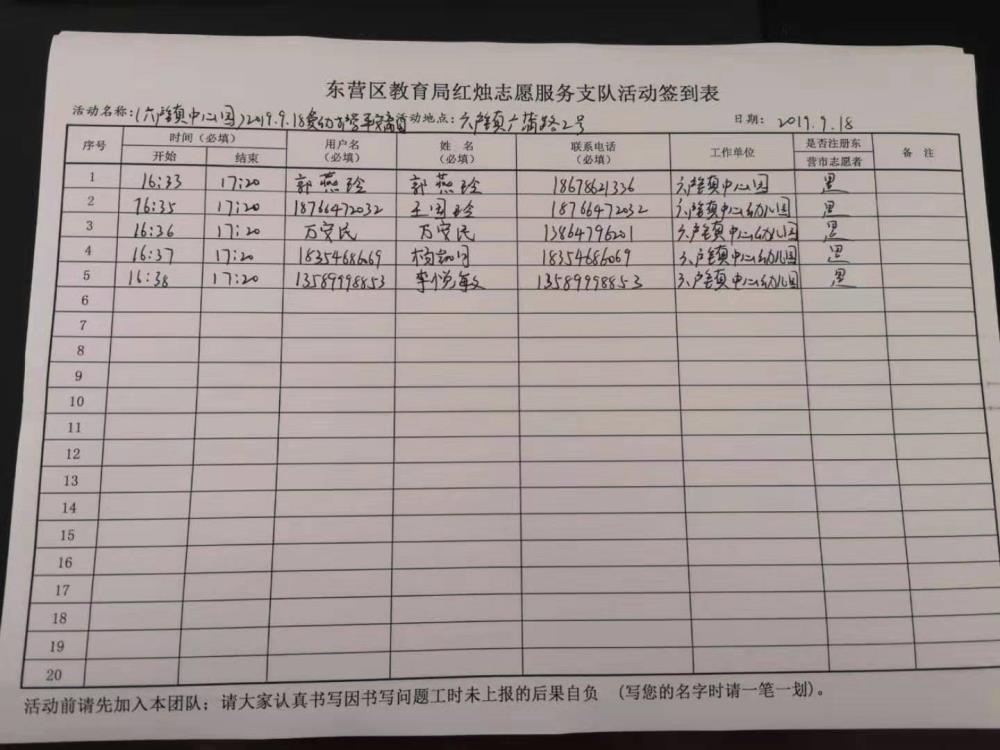 东营区教育局红烛志愿服务支队活动签到表
活动名称:(六户镇中心园)2019.9.18 活动地点:六户镇广蒲路2号 日期: 2019.9.18
序号 时间(必填) 用户名(必填) 姓名(必填) 联系电话(必填) 工作单位 是否注册东营市志愿者 备注
开始 结束
1 16:33 17:20 郭燕玲 郭燕玲 18678621336 六户镇中心园 是
2 16:35 17:20 18766472032 王国玲 18766472032 六户镇中心幼儿园 是
3 16:36 17:20 万安民 万安民 13864796201 六户镇中心幼儿园 是
4 16:37 17:20 18354686069 杨 18354686069 六户镇中心幼儿园 是
5 16:38 17:20 13589998853 李悦敏 13589998853 六户镇中心幼儿园 是
6
7
8
9
10
11
12
13
14
15
16
17
18
19
20
活动前请先加入本团队;请大家认真书写因书写问题工时未上报的后果自负 (写您的名字时请一笔一划)。